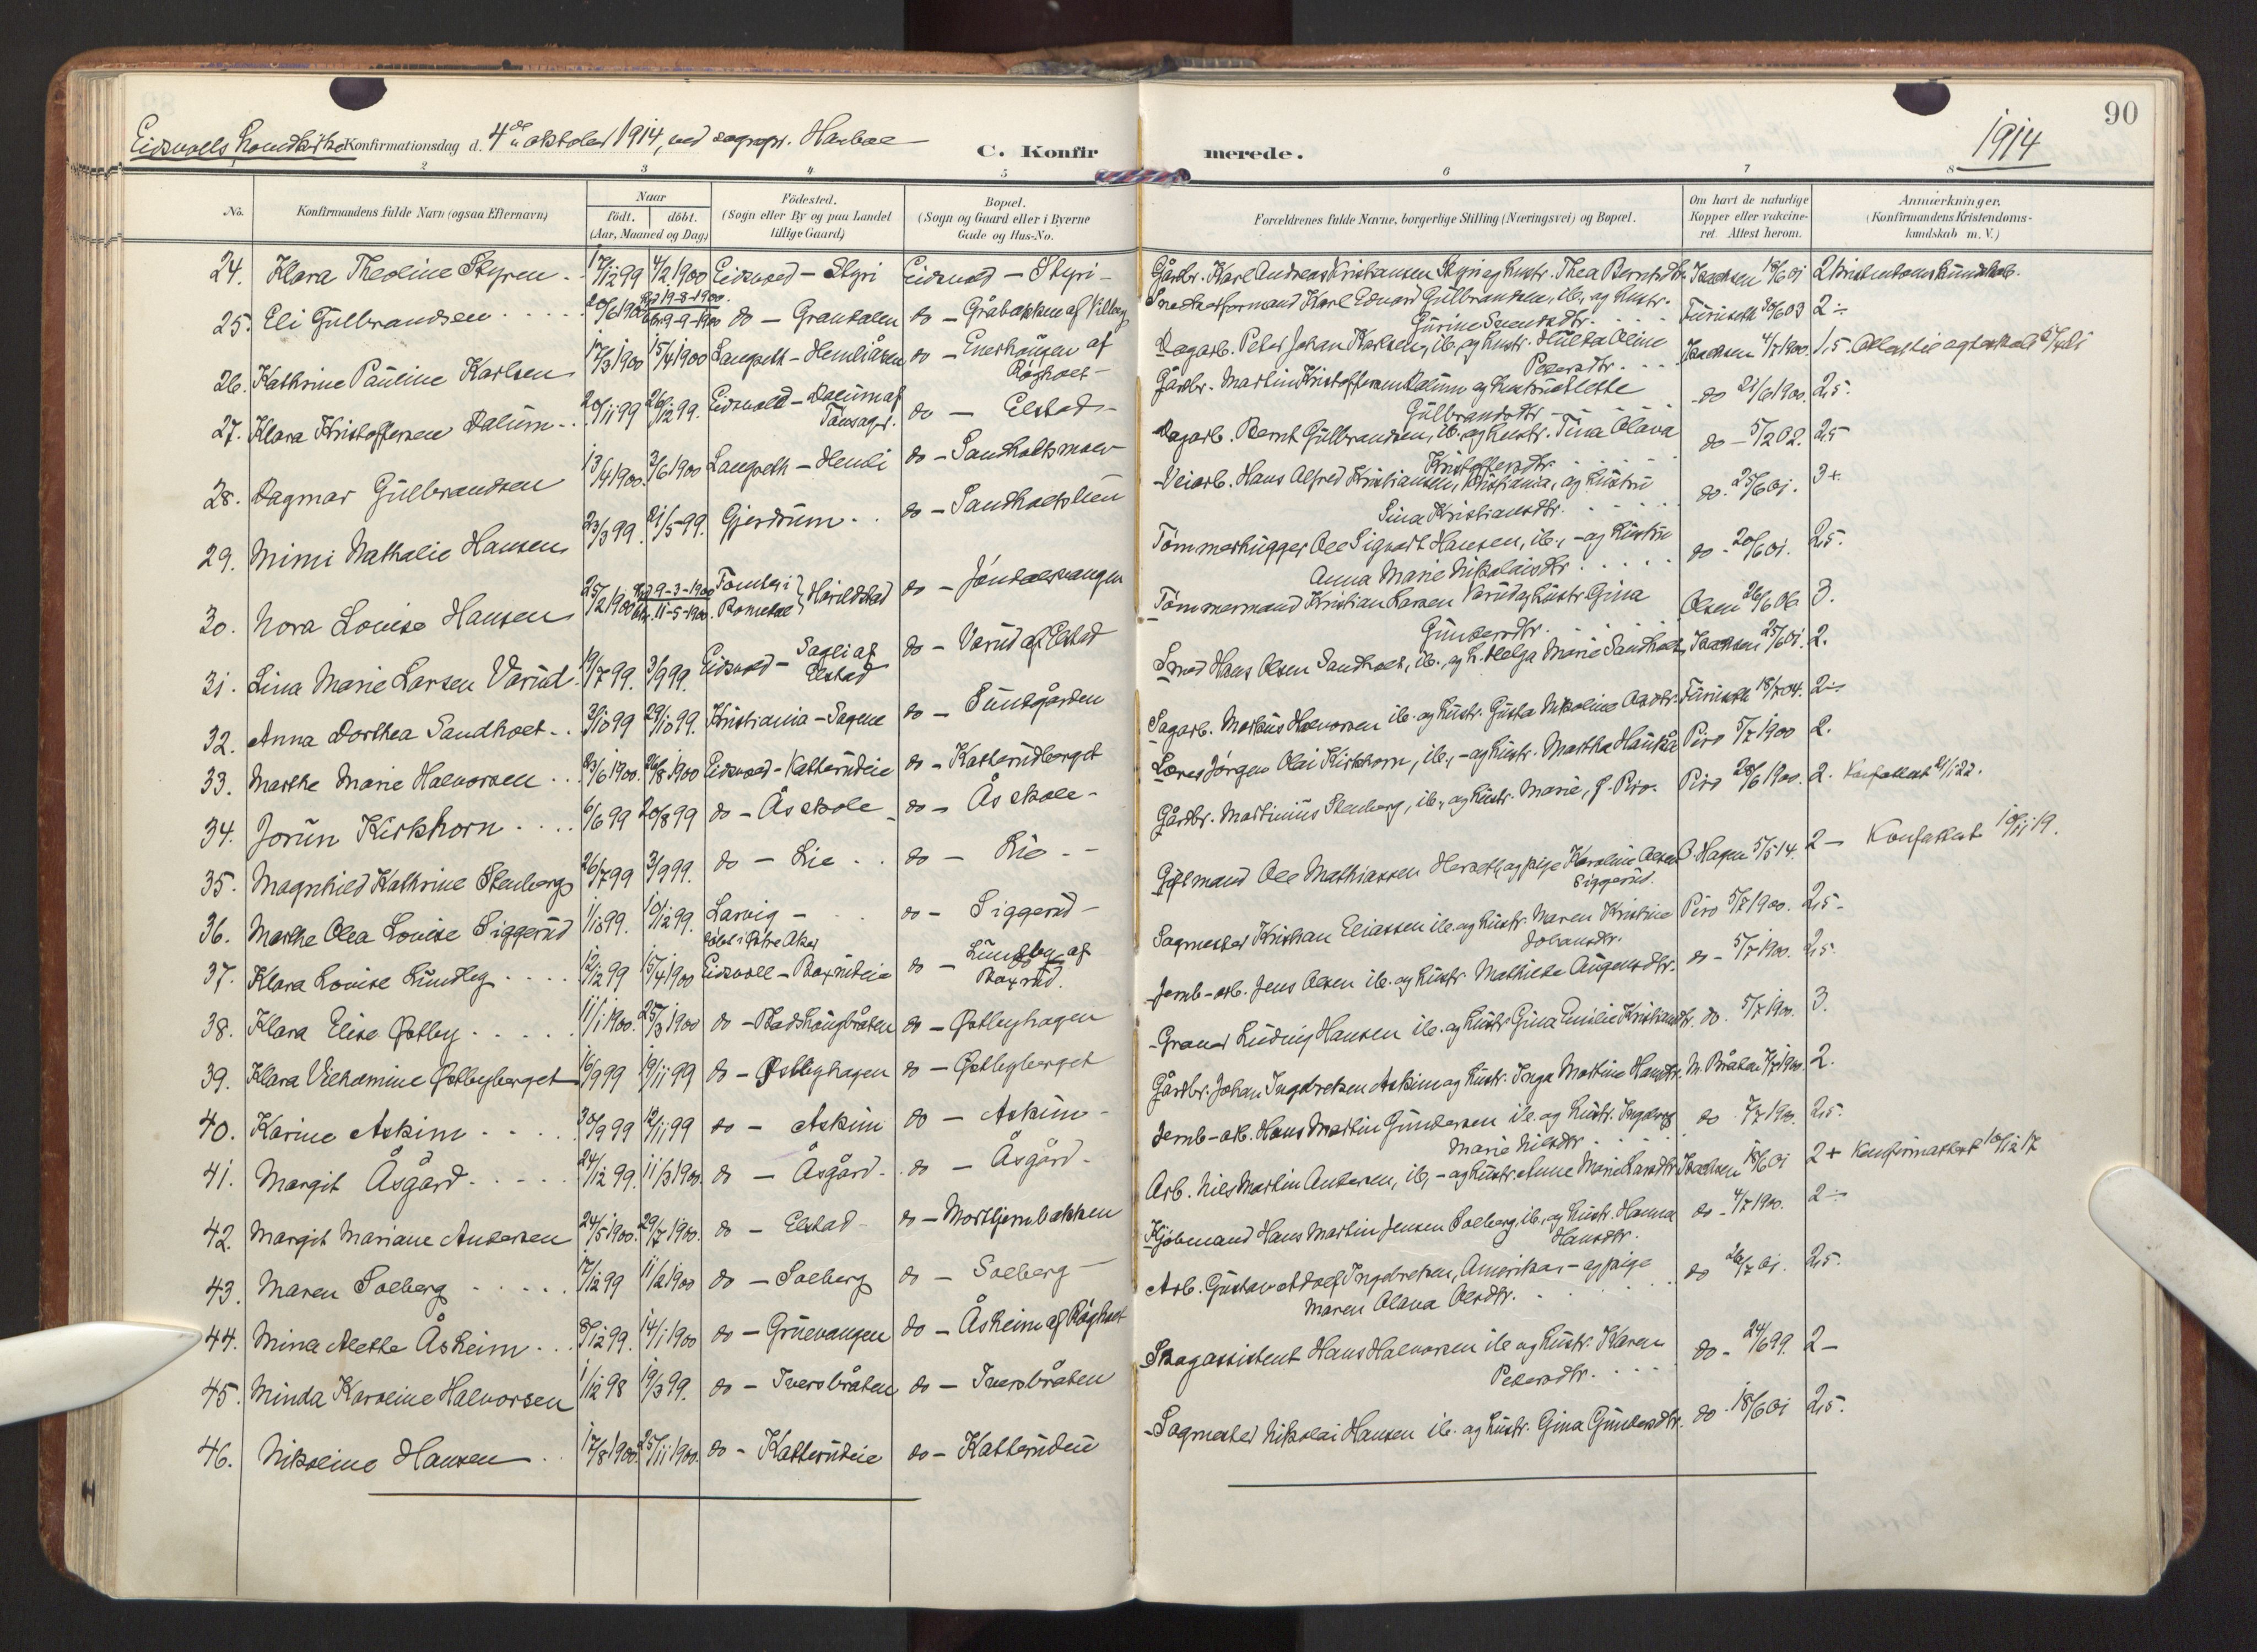 90
1914
Eidsvolls hovedkirke Konfirmationsdag d. 4de oktober 1914, ved sogнepr. Harboe
C. Konfirmerede.
1 2 3 4 5 6 7 8
No. Konfirmandens fulde Navn (ogsaa Efternavn) Naar født. døbt. (Aar, Maaned og Dag) Födested. (Sogn eller By og paa Landet tillige Gaard) Bopæl. (Sogn og Gaard eller i Byerne Gade og Hus-No. Forældrenes fulde Navne, borgerlige Stilling (Næringsvei) og Bopæl. Om havt de naturlige Kopper eller vaccineret. Attest herom. Anmærkninger. (Konfirmandens Kristendomskundskab m. V.)
24. Klara Theoline Styren 17/12 99 4/2 1900 Eidsvold - Styri Eidsvold - Styri Gårdbr. Karl Andreas Kristiansen Styri og hustr. Thea Berntsdtr. Isachsen 18/6 01 2 kristendomskundskab.
25. Eli Gulbrandsen 20/6 1900 19-8-1900 9-9-1900 do - Grandalen do - Gråbakken af Vilberg Karl Edvard Gulbrandsen, ib., og hustr. Gurine Svendsdtr. Furuseth 30/6 03 2÷
26. Kathrine Pauline Karlsen 17/3 1900 15/4 1900 Langseth - Hemliåsen do - Enerhaugen af Røgholt Dagarb. Peter Johan Karlsen, ib., og hustr. Hulda Oline Pedersdtr. Isachsen 4/7 1900. 1,5.
27. Klara Kristoffersen Dalum 20/11 99 26/12 99. Eidsvold - Dalum af Tønsager. do - Elstad Gårdbr. Martin Kristoffersen Dalum og hustru Gulbrandsdtr. do 21/6 1900. 2,5.
28. Dagmar Gulbrandsen 13/4 1900. 3/6 1900 Langseth - Hemli do - Sandholtsmoen Dagarb. Bernt Gulbrandsen, ib., og hustr. Tina Olava Kristoffersdtr. do - 5/2 02. 2,5
29. Mimi Nathalie Hansen 23/3 99 21/5 99. Gjerdrum do - Sandholtshein Veiarb. Hans Alfred Kristiansen, Kristiania, og hustru Sina Kristiansdtr. do. 25/6 01. 3+
30. Nora Louise Hansen 25/2 1900 9-3-1900 11-5-1900. Tomter i Romedal Harildstad do - Jøndalsvangen Tømmerhugger Ole Sigvart Hansen, ib., - og hustru Anna Marie Nikolaisdtr. do - 20/6 01. 2,5.
31. Lina Marie Larsen Værud 19/7 99. 3/9 99. Eidsvold - Sagli af Elstad do - Værud af Elstad Tømmermand Kristian Larsen Værud og hustr. Gina Gundersdtr. Olsen 26/6 06 3.
32. Anna Dorthea Sandholt 3/10 99 29/10 99. Kristiania - Sagene do - Sundgården Smed Hans Olsen Sandholt, ib., og h. Helga Marie Sandholt Isachsen 25/6 01. 2.
33. Marthe Marie Halvorsen 23/6 1900. 26/8 1900 Eidsvold - Katterudeie do - Katterudberget Sagarb. Markus Halvorsen ib. og hustr. Gusta Nikoline Olsdtr. Furuseth 18/7 04. 2÷
34. Jorun Kirkhorn 6/6 99 20/8 99 do - Ås skole do - Ås skole - Lærer Jørgen Olai Kirkhorn, ib., - og hustr. Martha Haukås Piro 5/7 1900 2.
35. Magnhild Kathrine Stenberg 26/7 99 3/9 99. do - Lie do - Lie Gårdbr. Martinius Stenberg, ib., og hustr. Marie, f. Piro. Piro 28/6 1900. 2. Konfattest 21/1 22.
36. Marthe Olea Louise Siggerud 1/10 99. 10/12 99. Larvig - døbt i Østre Aker do - Siggerud - Giftmand Ole Mathiassen Herseth, og pige Karoline Olsen Siggerud. B. Hagen 5/5 14. 2 - Konfattest 10/11 19.
37. Klara Louise Lundby 12/12 99 15/4 1900 Eidsvoll - Boxrudeie do - Lundby af Boxrud. Sagmester Kristian Eliassen ib. og hustr. Maren Kristine Johansdtr. Piro 5/7 1900. 2,5 -
38. Klara Elise Østby 11/1 1900. 25/3 1900 do - Badshaugbråten do - Østbyhagen Jernb-arb. Jens Olsen ib. og hustr. Mathilde Augensdtr. do - 5/7 1900. 2,5.
39. Klara Vilhelmine Østbyberget 16/9 99 19/11 99 do - Østbyhagen do - Østbyberget Graver Ludvig Hansen ib. og hustr. Gina Emilie Kristiansdtr. do. 5/7 1900. 3.
40. Karine Askim 30/9 99 12/11 99 do - Askim do - Askim - Gårdbr. Johan Ingebretsen Askim og hustr. Inga Martine Hansdtr. M. Bråten 7/7 1900. 2.
41. Margit Åsgård 24/12 99. 11/3 1900. do - Åsgård - do - Åsgård - Jernb-arb. Hans Martin Gundersen ib. og hustr. Ingeborg Marie Nilsdtr. do 7/7 1900. 2,5.
42. Margit Mariane Andersen 24/5 1900. 29/7 1900. do - Elstad do - Morttjernbakken Arb. Nils Martin Andersen, ib., - og hustr. Anne Marie Larsdtr. Isachsen 18/6 01 2+ Konfirmattest 10/12 17
43. Maren Solberg 17/12 99 11/2 1900 do - Solberg do - Solberg - Kjøbmand Hans Martin Jensen Solberg, ib., og hustr. Hanna Hansdtr. do - 4/7 1900. 2÷
44. Mina Alethe Åsheim 8/12 99. 14/1 1900 do - Gruevangen do - Åsheim af Røgholt Arb. Gustav Adolf Ingebretsen, Amerika, - og pige Maren Olava Olsdtr. do 26/7 01. 2,5.
45. Minda Karoline Halvorsen 1/12 98 19/3 99. do - Iversbråten do - Iversbråten Skogassistent Hans Halvorsen ib og hustr. Karen Pedersdtr. do - 24/6 99. 2 -
46. Nikoline Hansen 17/8 1900. 25/11 1900. do - Katterudeie do - Katterudeie Sagmester Nikolai Hansen ib. og hustr. Gina Gundersdtr. do - 18/6 01 2,5.